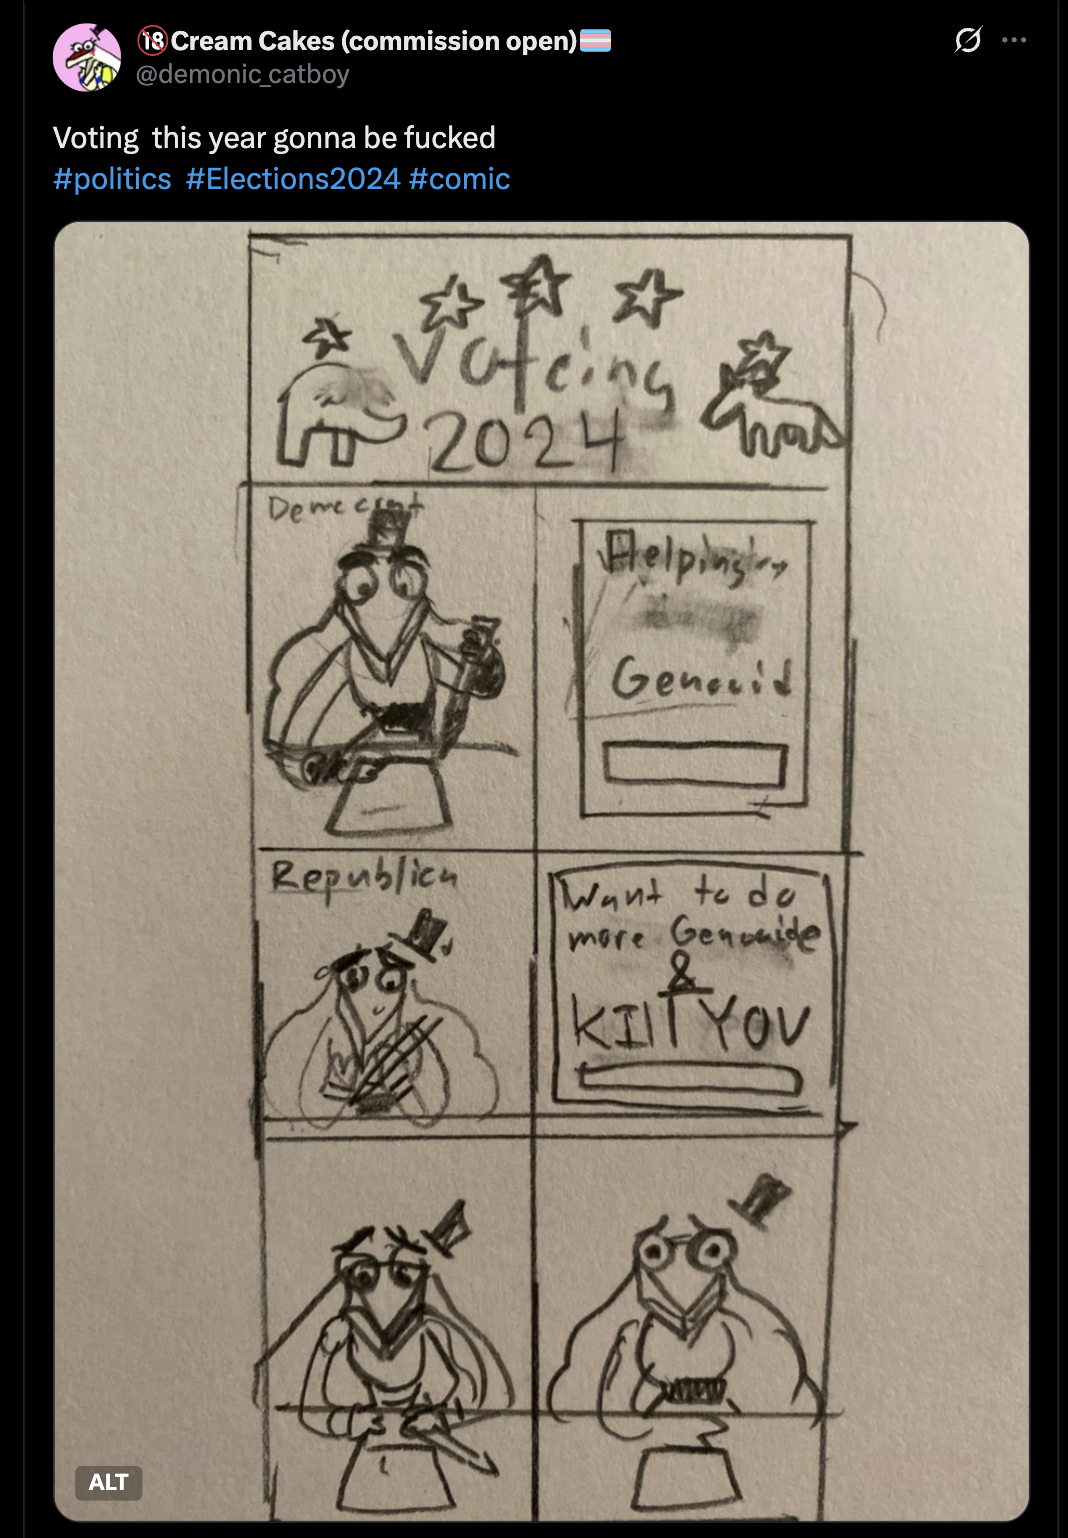 🔞Cream Cakes (commission open)🏳️‍⚧️
@demonic_catboy
Voting this year gonna be fucked
#politics #Elections2024 #comic
Voteing
2024
Democrat
Helping
Genocid
Republicn
Want to do
more Genocide
&
KIll YOU
ALT